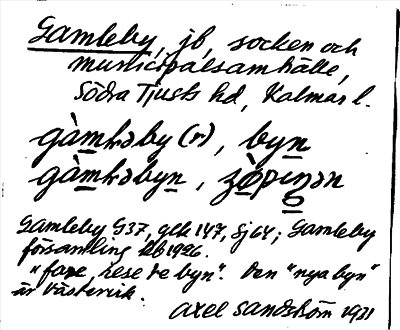 Gamleby, jb, socken och
municipalsamhälle,
Södra Tjusts hd, Kalmar l.
gàmləby (n), byn
gàmləbyn,
Gamleby G37, gck 147, Sj 64; Gamleby
församling kb 1926.
"fare, rese te byn". Den "nya byn"
är Västervik.
Axel Sandström 1931